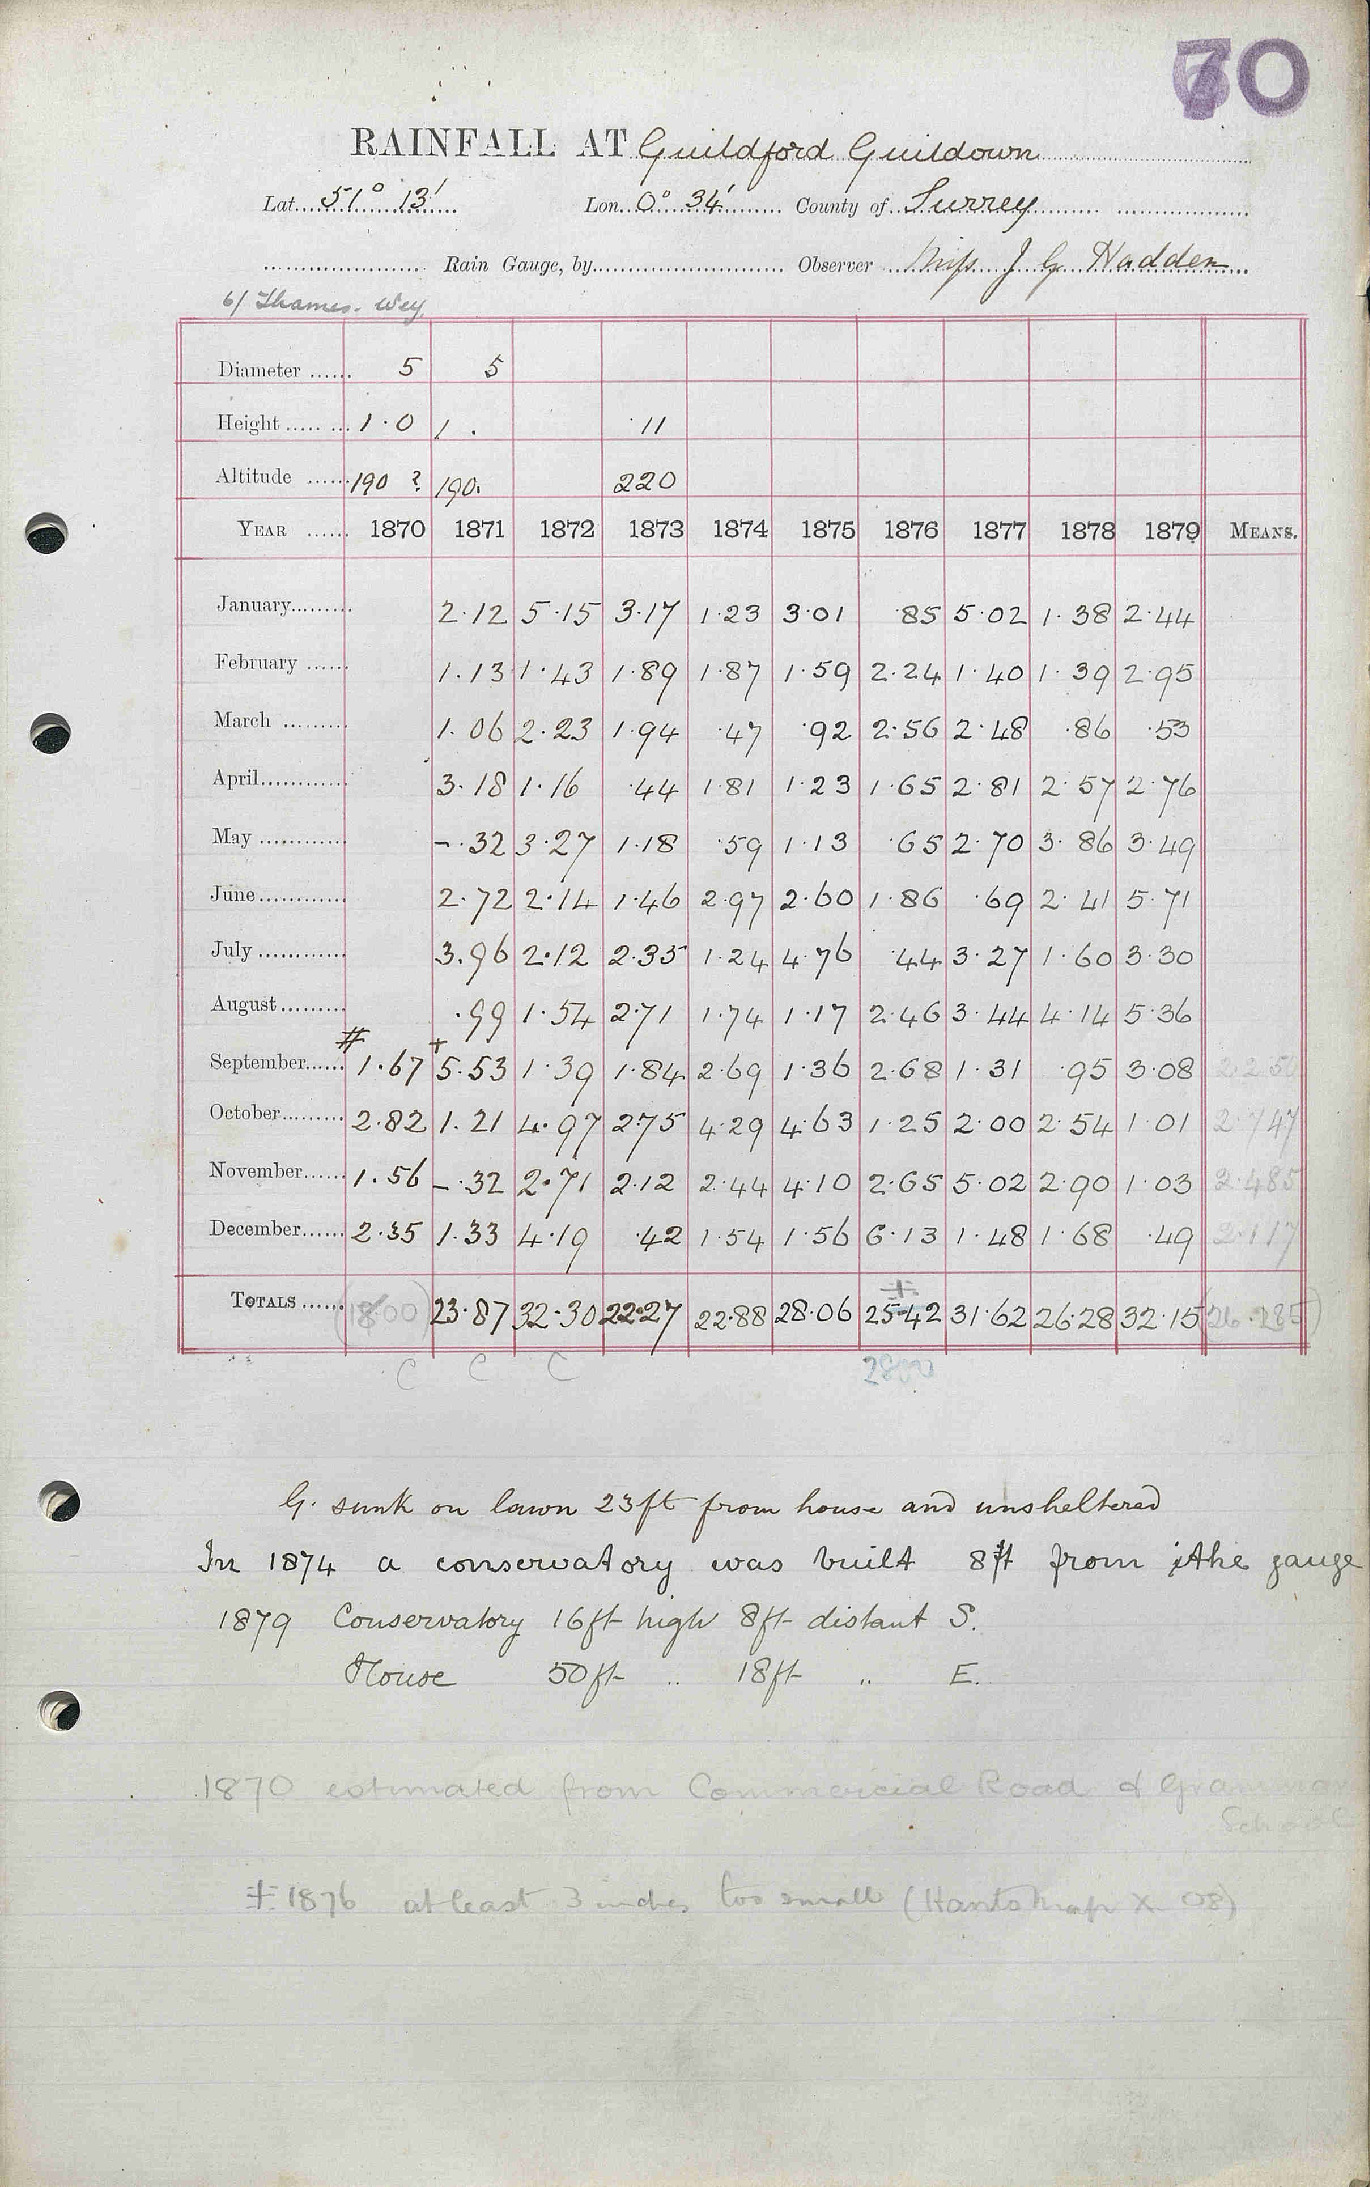 70
RAINFALL AT Guildford Guildown
Lat. 51° 13' Lon. 0° 34' County of Surrey
Rain Gauge, by Observer Miss J G Hadden
6/ Thames. Wey.
Diameter 5 5
Height 1.0 1. .11
Altitude 190 ? 190. 220
YEAR 1870 1871 1872 1873 1874 1875 1876 1877 1878 1879 MEANS.
January 2.12 5.15 3.17 1.23 3.01 .85 5.02 1.38 2.44
February 1.13 1.43 1.89 1.87 1.59 2.24 1.40 1.39 2.95
March 1.06 2.23 1.94 .47 .92 2.56 2.48 .86 .53
April 3.18 1.16 .44 1.81 1.23 1.65 2.81 2.57 2.76
May -.32 3.27 1.18 .59 1.13 .65 2.70 3.86 3.49
June 2.72 2.14 1.46 2.97 2.60 1.86 .69 2.41 5.71
July 3.96 2.12 2.35 1.24 4.76 .44 3.27 1.60 3.30
August .99 1.54 2.71 1.74 1.17 2.46 3.44 4.14 5.36
September # 1.67 + 5.53 1.39 1.84 2.69 1.36 2.68 1.31 .95 3.08 2.250
October 2.82 1.21 4.97 2.75 4.29 4.63 1.25 2.00 2.54 1.01 2.747
November 1.56 -.32 2.71 2.12 2.44 4.10 2.65 5.02 2.90 1.03 2.485
December 2.35 1.33 4.19 .42 1.54 1.56 6.13 1.48 1.68 .49 2.117
TOTALS (18.00) 23.87 32.30 22.27 22.88 28.06 ‡ 25.42 31.62 26.28 32.15 (26.285)
C C C 2800
G. sunk on lawn 23ft from house and unsheltered
In 1874 a conservatory was built 8ft from the gauge
1879 Conservatory 16ft high 8ft distant S.
House 50ft .. 18ft .. E.
1870 estimated from Commercial Road & Grammar
School
‡ 1876 at least 3 inches too small (Hants map X 08)